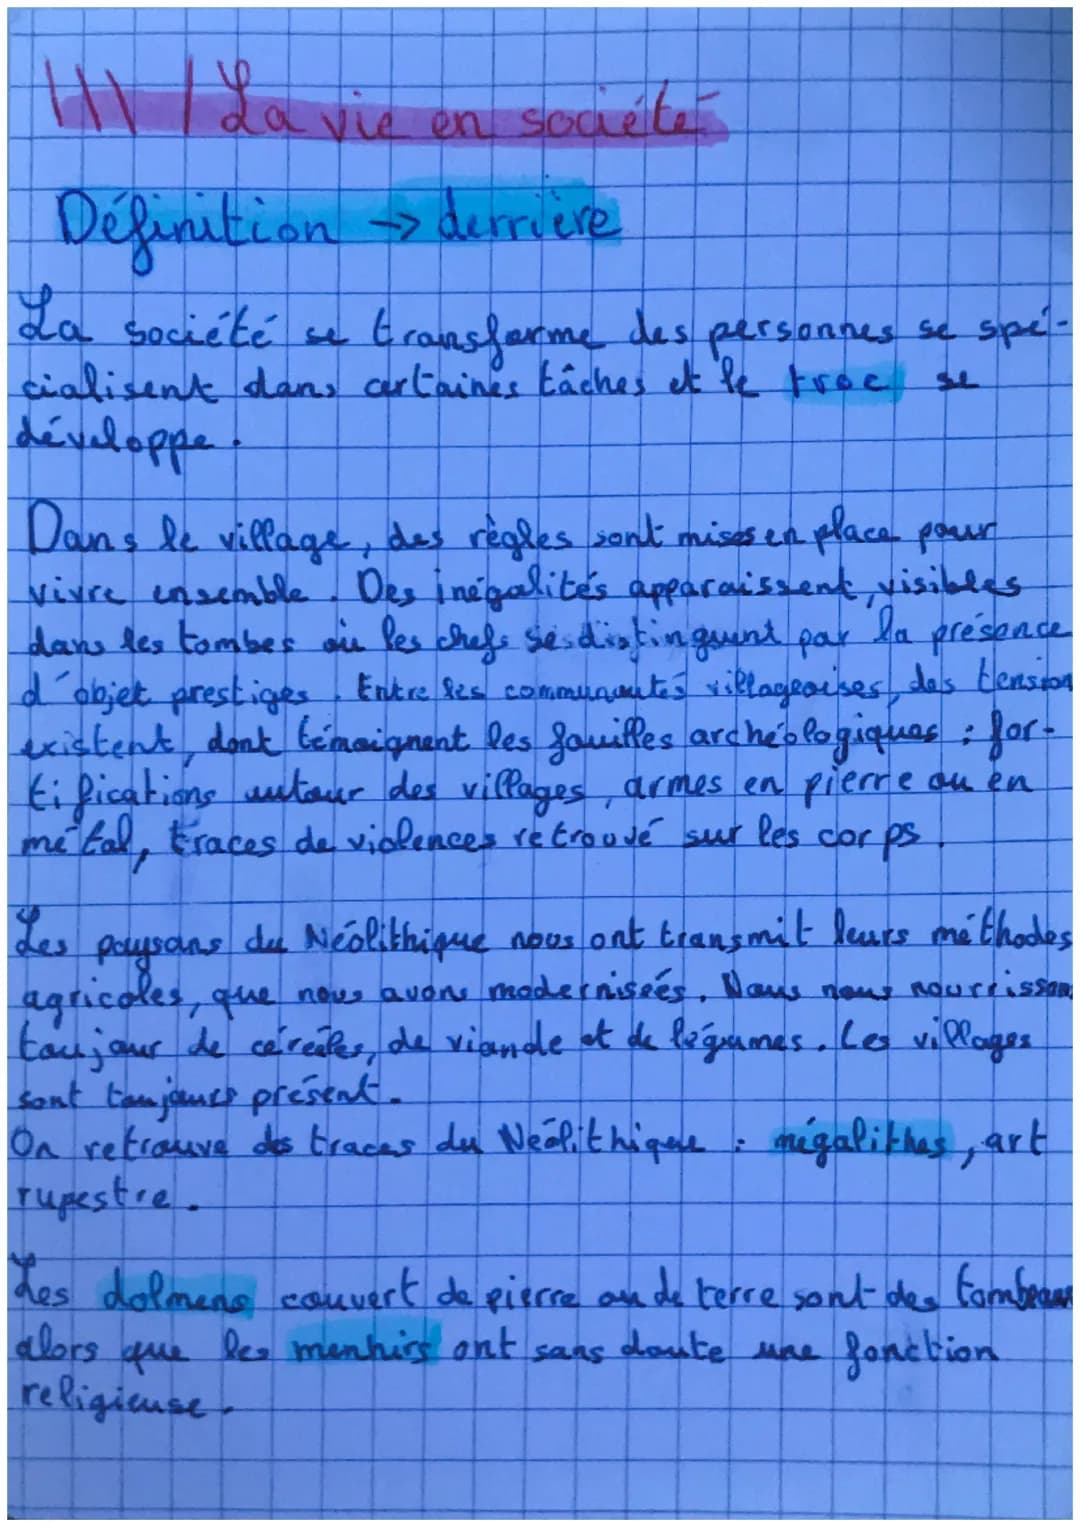 III / La vie en société
Définition → derrière
La société se transforme des personnes se spé-
cialisent dans certaines tâches et le troc se
développe.
Dans le village, des règles sont mises en place pour
vivre ensemble. Des inégalités apparaissent, visibles
dans les tombes où les chefs se distinguent par la présence
d'objet prestiges. Entre les communautés villageoises, des tension
existent, dont témoignent les fouilles archéologiques : for-
tifications autour des villages, armes en pierre ou en
métal, traces de violences retrouvé sur les corps.
Les paysans du Néolithique nous ont transmit leurs méthodes
agricoles, que nous avons modernisées. Nous nous nourrisson
toujour de céréales, de viande et de légumes. Les villages
sont toujours présent.
On retrouve des traces du Néolithique : mégalithes, art
rupestre.
Les dolmens couvert de pierre ou de terre sont des tombeau
alors que les menhirs ont sans doute une fonction
religieuse.